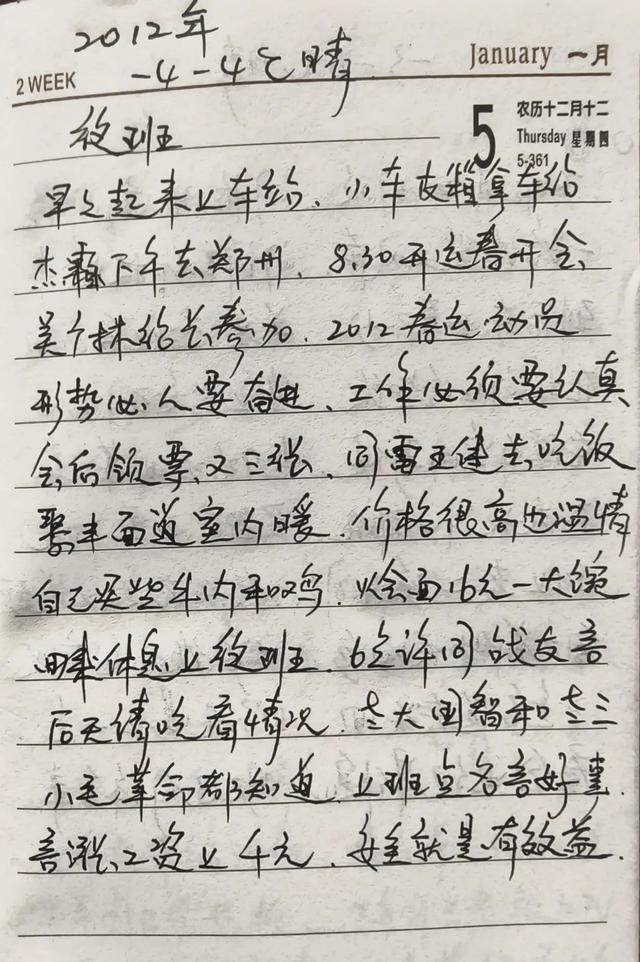 2012年
January 一月
2 WEEK
-4-4℃晴
5
农历十二月十二
Thursday 星期四
5-361
夜班
早上起来上车站、小车友箱拿车给
杰霖下午去郑州、8.30开运春开会
关个株给长参加、2012春运动员
形势、人要奋进、工作必须要认真
会后领票、又三张、同雷王健去吃饭
聚丰面道室内暖、价格很高也温情
自己买些牛肉和鸡、烩面16元一大碗
休息上夜班、6点许同战友言
后天请吃看情况、大国智和三
小毛革命都知道、上班点名言好事
言涨工资上千元、安全就是有效益、